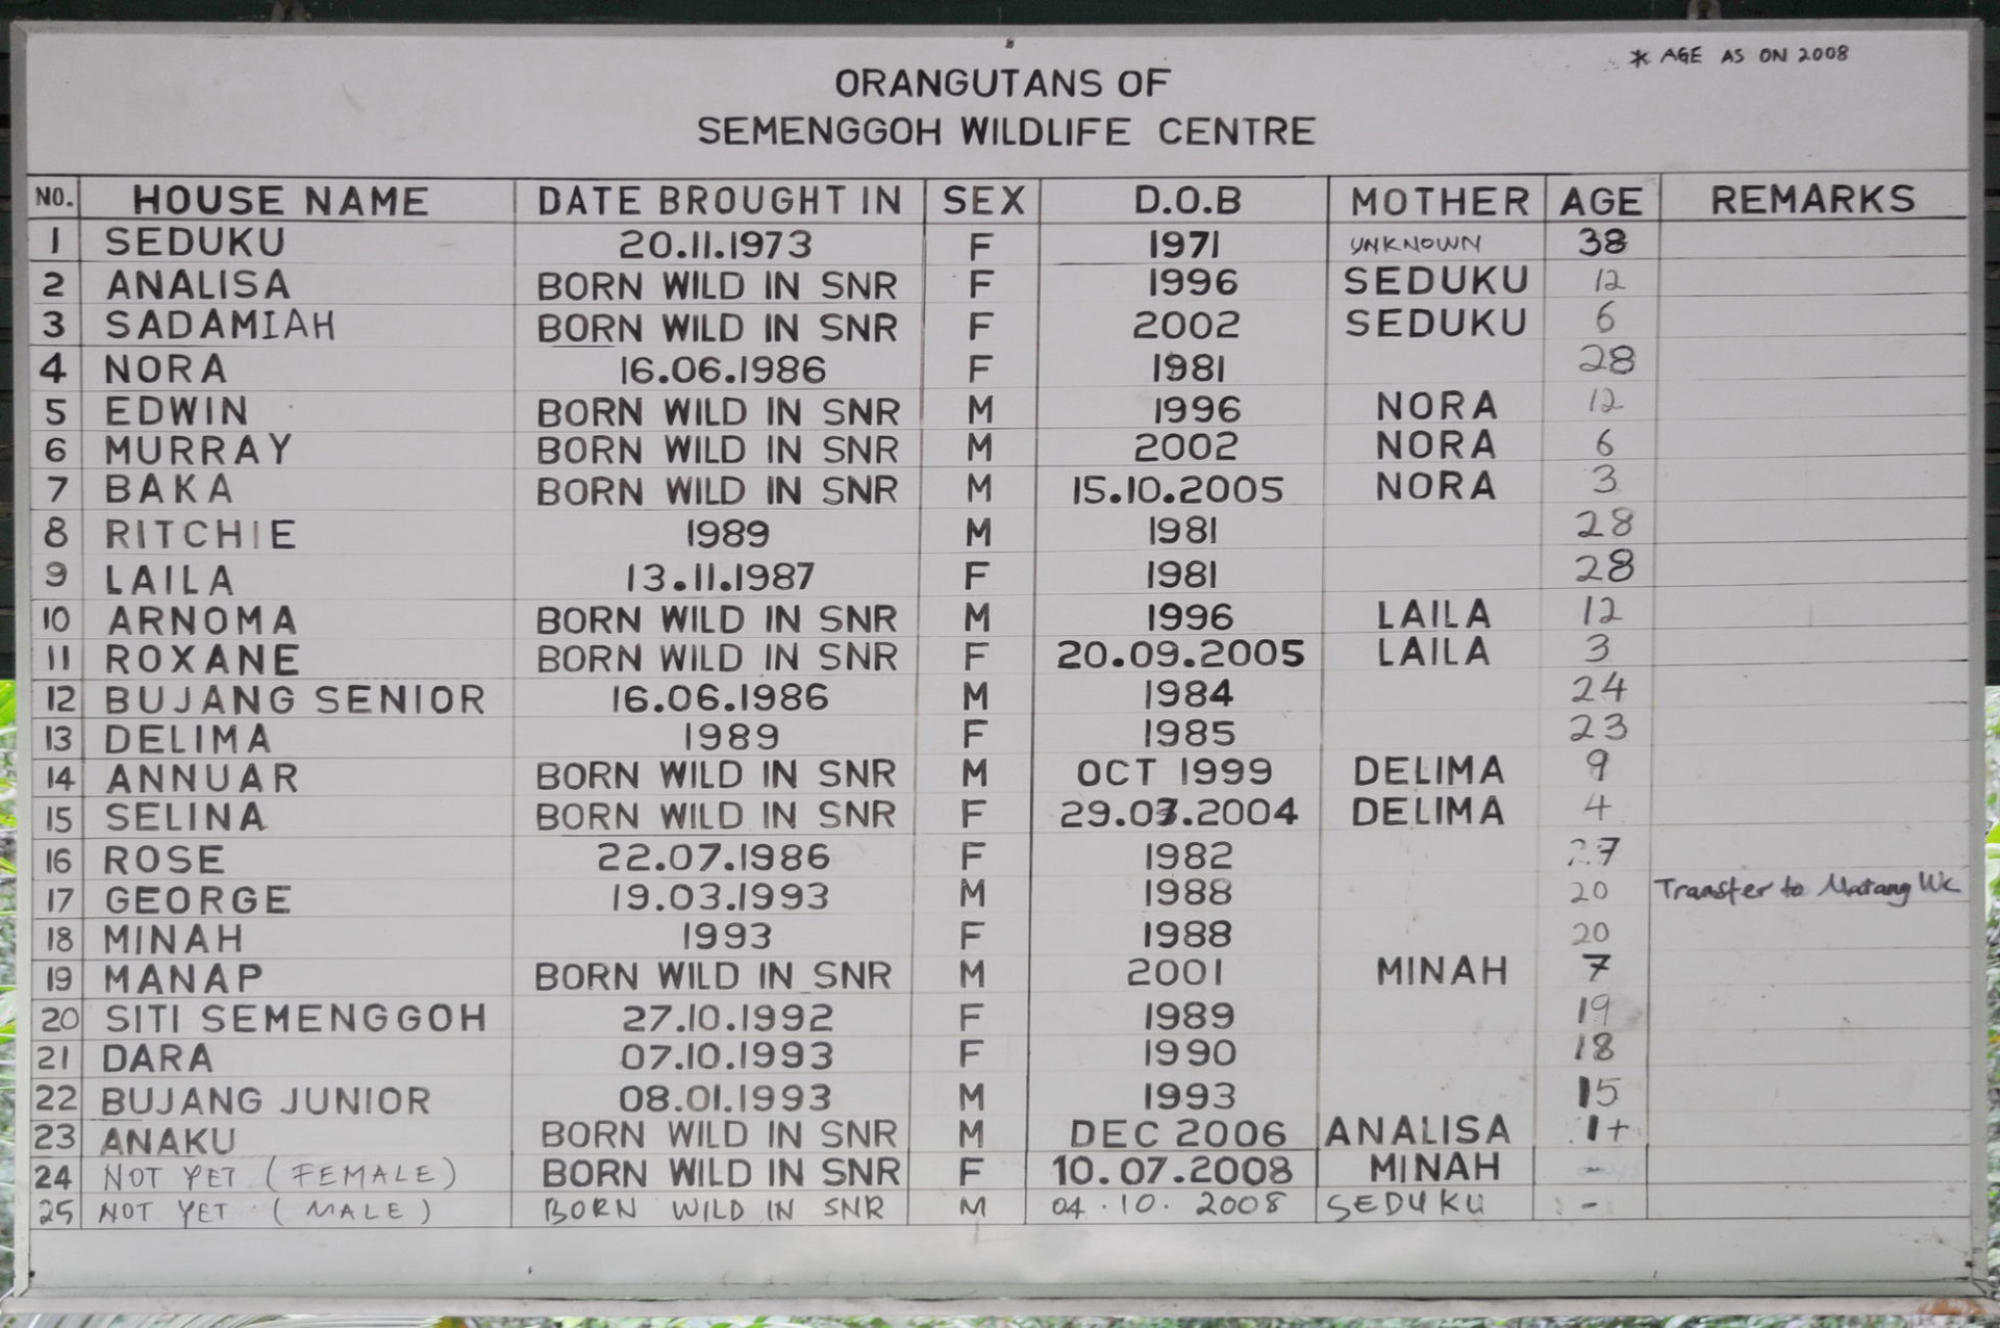 * AGE AS ON 2008
ORANGUTANS OF
SEMENGGOH WILDLIFE CENTRE
NO. HOUSE NAME DATE BROUGHT IN SEX D.O.B MOTHER AGE REMARKS
1 SEDUKU 20.11.1973 F 1971 UNKNOWN 38
2 ANALISA BORN WILD IN SNR F 1996 SEDUKU 12
3 SADAMIAH BORN WILD IN SNR F 2002 SEDUKU 6
4 NORA 16.06.1986 F 1981 28
5 EDWIN BORN WILD IN SNR M 1996 NORA 12
6 MURRAY BORN WILD IN SNR M 2002 NORA 6
7 BAKA BORN WILD IN SNR M 15.10.2005 NORA 3
8 RITCHIE 1989 M 1981 28
9 LAILA 13.11.1987 F 1981 28
10 ARNOMA BORN WILD IN SNR M 1996 LAILA 12
11 ROXANE BORN WILD IN SNR F 20.09.2005 LAILA 3
12 BUJANG SENIOR 16.06.1986 M 1984 24
13 DELIMA 1989 F 1985 23
14 ANNUAR BORN WILD IN SNR M OCT 1999 DELIMA 9
15 SELINA BORN WILD IN SNR F DELIMA 4
16 ROSE 22.07.1986 F 1982 27
17 GEORGE 19.03.1993 M 1988 20 Transfer to Matang WC
18 MINAH 1993 F 1988 20
19 MANAP BORN WILD IN SNR M 2001 MINAH 7
20 SITI SEMENGGOH 27.10.1992 F 1989 19
21 DARA 07.10.1993 F 1990 18
22 BUJANG JUNIOR 08.01.1993 M 1993 15
23 ANAKU BORN WILD IN SNR M DEC 2006 ANALISA 1+
24 NOT YET (FEMALE) BORN WILD IN SNR F 10.07.2008 MINAH -
25 NOT YET (MALE) BORN WILD IN SNR M 04.10.2008 SEDUKU -